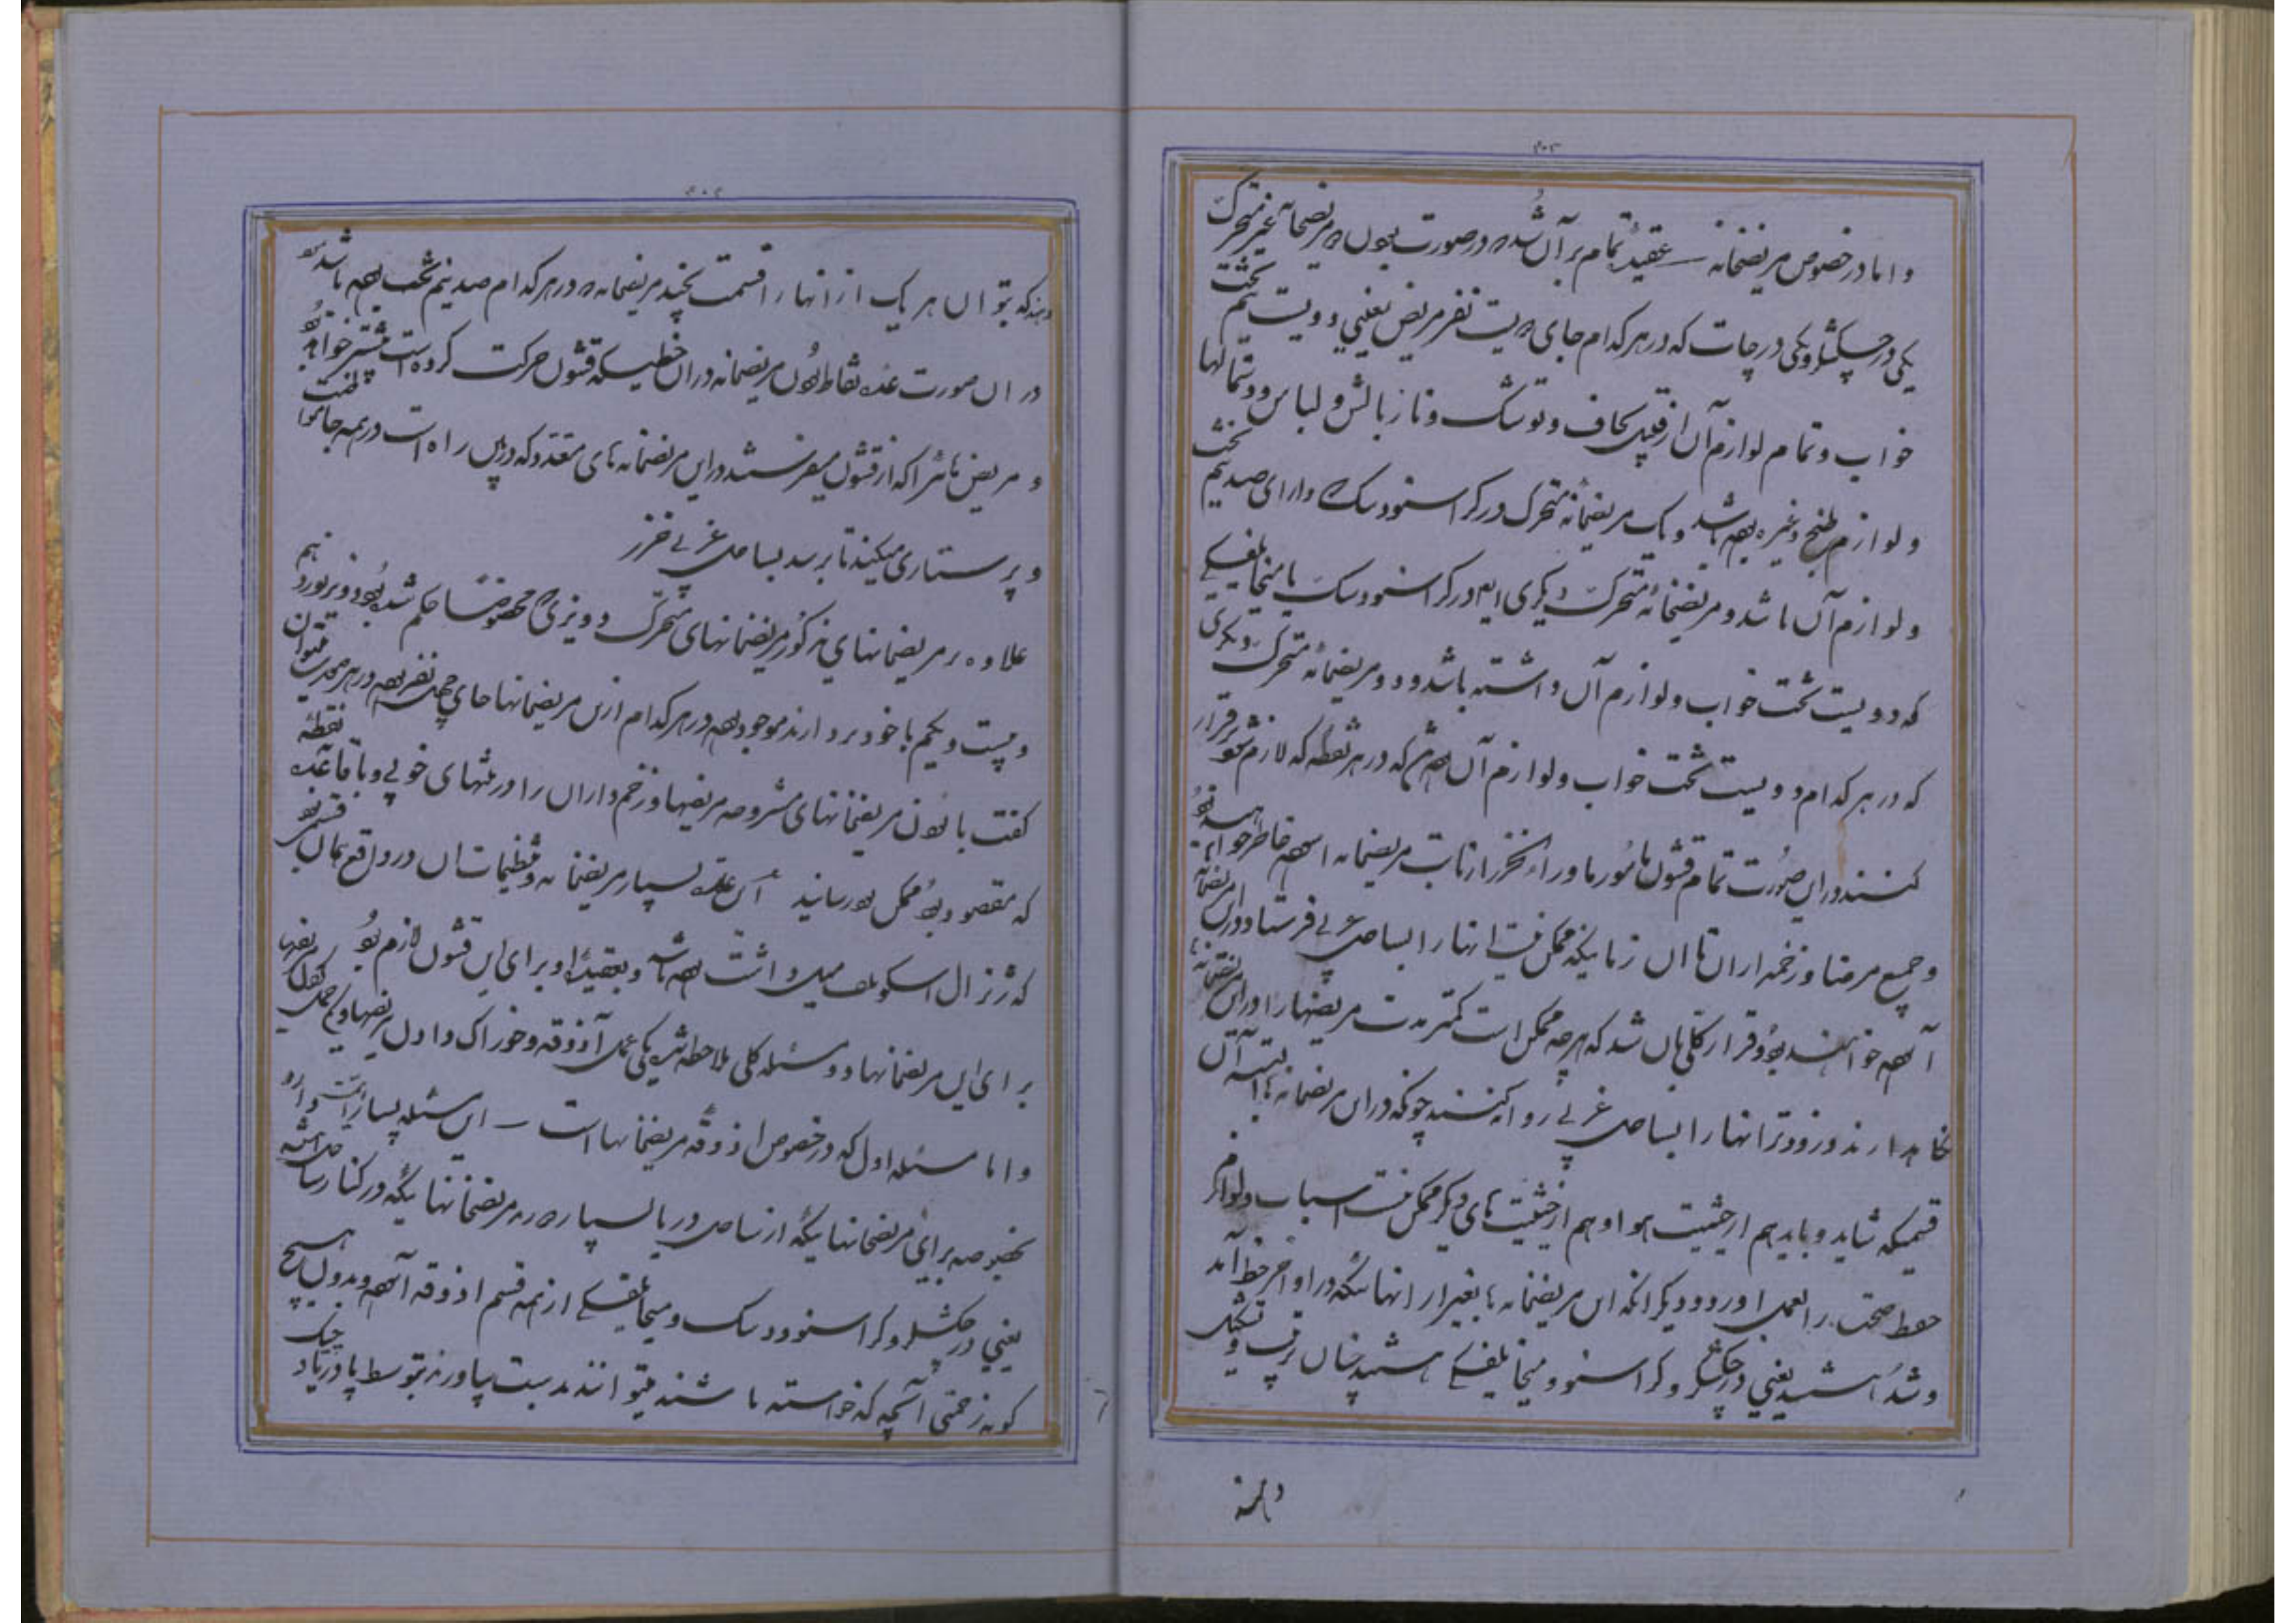 و اما در خصوص مریضخانه عقیده تمام بر آن شده در صورت بودن مریضخانه غیر متحرک
یکی در چکشلر و یکی در چات که در هر کدام جای دویست نفر مریض یعنی دویست نیم تخت
خواب و تمام لوازم آن از قبیل لحاف و توشک و ناز بالش و لباس و دستمالها
و لوازم طبخ و غیره بوده باشد و یک مریضخانه متحرک در کراسنوودسک دارای صد نیم تخت
و لوازم آن باشد و مریضخانه متحرک دیگری ایضا در کراسنوودسک یا میخایلفسکی
که دویست تخت خواب و لوازم آن داشته باشد و دو مریضخانه متحرک دیگری
که در هر کدام دویست تخت خواب و لوازم آن باشد که در هر نقطه که لازم شود برقرار
کنند در این صورت تمام قشون مأمور ماوراء خزر از بابت مریضخانه آسوده خاطر خواهند بود
و جمیع مرضا و زخمداران تا آن زمانیکه ممکن نیست آنها را بساحل غربی فرستاد در این مریضخانه
آسوده خواهند بود و قرار کلی بآن شد که هر چه ممکن است کمتر مدت مریضها را در این مریضخانه‌ها
نگاهدارند و زودتر آنها را بساحل غربی روانه کنند چونکه در این مریضخانه‌ها البته آن
قسمیکه شاید و باید هم از حیثیت هوا و هم از حیثیت های دیگر ممکن نیست اسباب و لوازم
حفظ صحت را بعمل آورد و دیگر آنکه این مریضخانه‌ها بغیر از آنهائیکه در اواخر خط آمد
و شد هستند یعنی در چکشلر و کراسنوودسک و میخایلفسکی هستند چنان ترتیب و تشکیل
دهند
دهند که بتوان هر یک از آنها را قسمت بچند مریضخانه که در هر کدام صد نیم تخت بوده باشد نمود
در آن صورت عده نقاط بودن مریضخانه در آن خطیکه قشون حرکت کرده است بیشتر خواهد بود
و مریض هائی را که از قشون میفرستند در این مریضخانه های متعدد که در این راه است در همه جا مواظبت
و پرستاری میکنند تا برسد بساحل غربی خزر
علاوه بر مریضخانهای مذکور مریضخانهای متحرک دویزی که مخصوصا حکم شده بود دویزیون نوزدهم
و بیست و یکم با خود بردارند موجود بوده در هر کدام از این مریضخانها جای نفر بوده در هر صورت میتوان
گفت با بودن مریضخانهای مشروحه مریضها و زخم داران را در مکانهای خوبی و با قاعده نقطه
که مقصود بود ممکن بود رسانید این عده بسیار مریضخانه و تنظیمات آن در واقع بهمان قسمی بود
که ژنرال اسکوبلف میل داشت بوده باشد و بعقیده او برای این قشون لازم بود
برای این مریضخانها دو مسئله کلی ملاحظه شد یکی حمل آذوقه و خوراک و اول مریضها و یکی حمل و نقل مریضها
و اما مسئله اول که در خصوص اذوقه مریضخانها است این مسئله بسیار اهمیت دارد
بخصوصه برای مریضخانهائیکه از ساحل دریا بسیار دورند مریضخانهائیکه در کنار ساحل هستند
یعنی در چکشلر و کراسنوودسک و میخایلفسکی از همه قسم اذوقه آسوده و بدون هیچ
گونه زحمتی آنچه که خواسته باشند میتوانند بدست بیاورند بتوسط پادریاد چیک